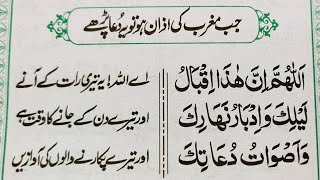 جب مغرب کی اذان ہو تو یہ دُعا پڑھے
اَللّٰهُمَّ اِنَّ هٰذَا اِقْبَالُ
لَيْلِكَ وَاِدْبَارُ نَهَارِكَ
وَاَصْوَاتُ دُعَاتِكَ
اے اللہ! یہ تیری رات کے آنے
اور تیرے دن کے جانے کا وقت ہے
اور تیرے پکارنے والوں کی آوازیں